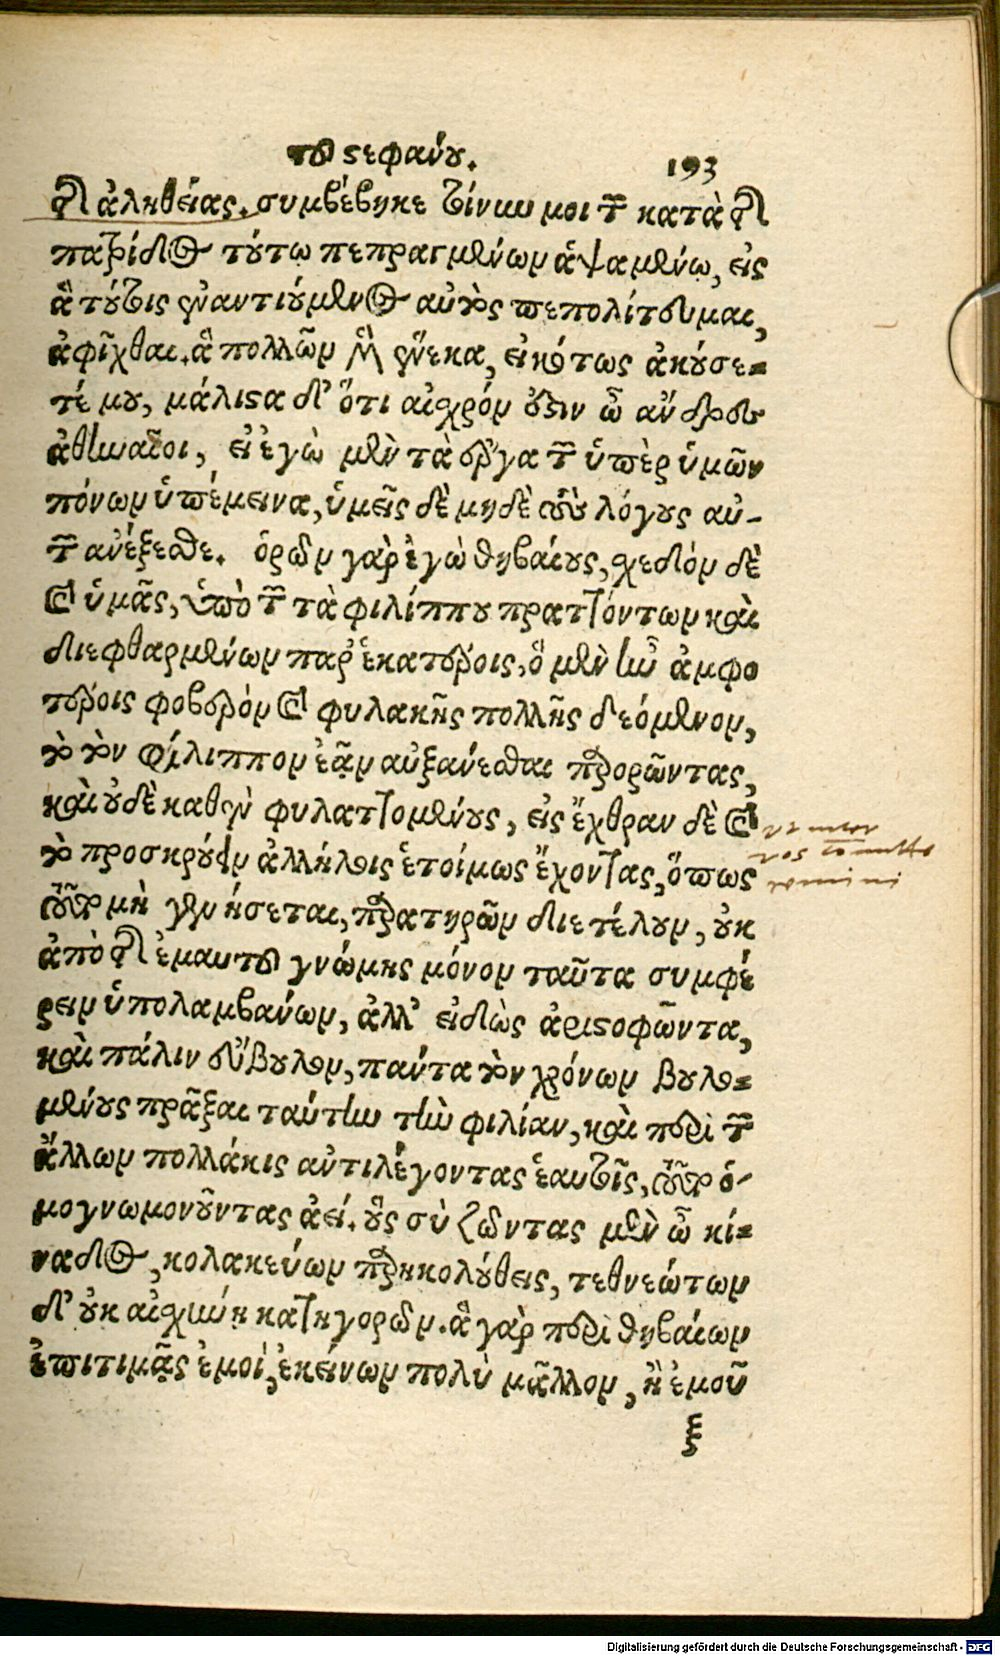 τοῦ στεφάνου. 193
τῆς ἀληθείας. συμβέβηκε τοίνυν μοι τῶν κατὰ τῆς
πατρίδος τούτῳ πεπραγμένων ἁψαμένῳ, εἰς
ἃ τούτοις ἐναντιούμενος αὐτὸς πεπολίτευμαι,
ἀφῖχθαι. ἃ πολλῶν μὲν ἕνεκα, εἰκότως ἀκούσε-
τέ μου, μάλιστα δ' ὅτι αἰσχρόν ἐστιν ὦ ἄνδρες
ἀθηναῖοι, εἰ ἐγὼ μὲν τὰ ἔργα τῶν ὑπὲρ ὑμῶν
πόνων ὑπέμεινα, ὑμεῖς δὲ μηδὲ τοὺς λόγους αὐ-
τῶν ἀνέξεσθε. ὁρῶν γὰρ ἐγὼ θηβαίους, σχεδὸν δὲ
καὶ ὑμᾶς, ὑπὸ τῶν τὰ φιλίππου πραττόντων καὶ
διεφθαρμένων παρ' ἑκατέροις, ὃ μὲν ἦν ἀμφο
τέροις φοβερὸν καὶ φυλακῆς πολλῆς δεόμενον,
τὸ τὸν φίλιππον ἐᾷν αὐξάνεσθαι παρορῶντας,
καὶ οὐδὲ καθ' ἓν φυλαττομένους, εἰς ἔχθραν δὲ καὶ
τὸ προσκρούειν ἀλλήλοις ἑτοίμως ἔχοντας, ὅπως
τοῦτο μὴ γενήσεται, παρατηρῶν διετέλουν, οὐκ
ἀπὸ τῆς ἐμαυτοῦ γνώμης μόνον ταῦτα συμφέ
ρειν ὑπολαμβάνων, ἀλλ' εἰδὼς ἀριστοφῶντα,
καὶ πάλιν εὔβουλον, πάντα τὸν χρόνων βουλο-
μένους πρᾶξαι ταύτην τὴν φιλίαν, καὶ περὶ τῶν
ἄλλων πολλάκις ἀντιλέγοντας ἑαυτοῖς, τοῦτο ὁ-
μογνωμονοῦντας ἀεί. οὓς σὺ ζῶντας μὲν ὦ κί-
ναδος, κολακεύων παρηκολούθεις, τεθνεώτων
δ' οὐκ αἰσχύνῃ κατηγορῶν. ἃ γὰρ περὶ θηβαίων
ἐπιτιμᾷς ἐμοί, ἐκείνων πολὺ μᾶλλον, ἢ ἐμοῦ
ξ
Digitalisierung gefördert durch die Deutsche Forschungsgemeinschaft - DFG